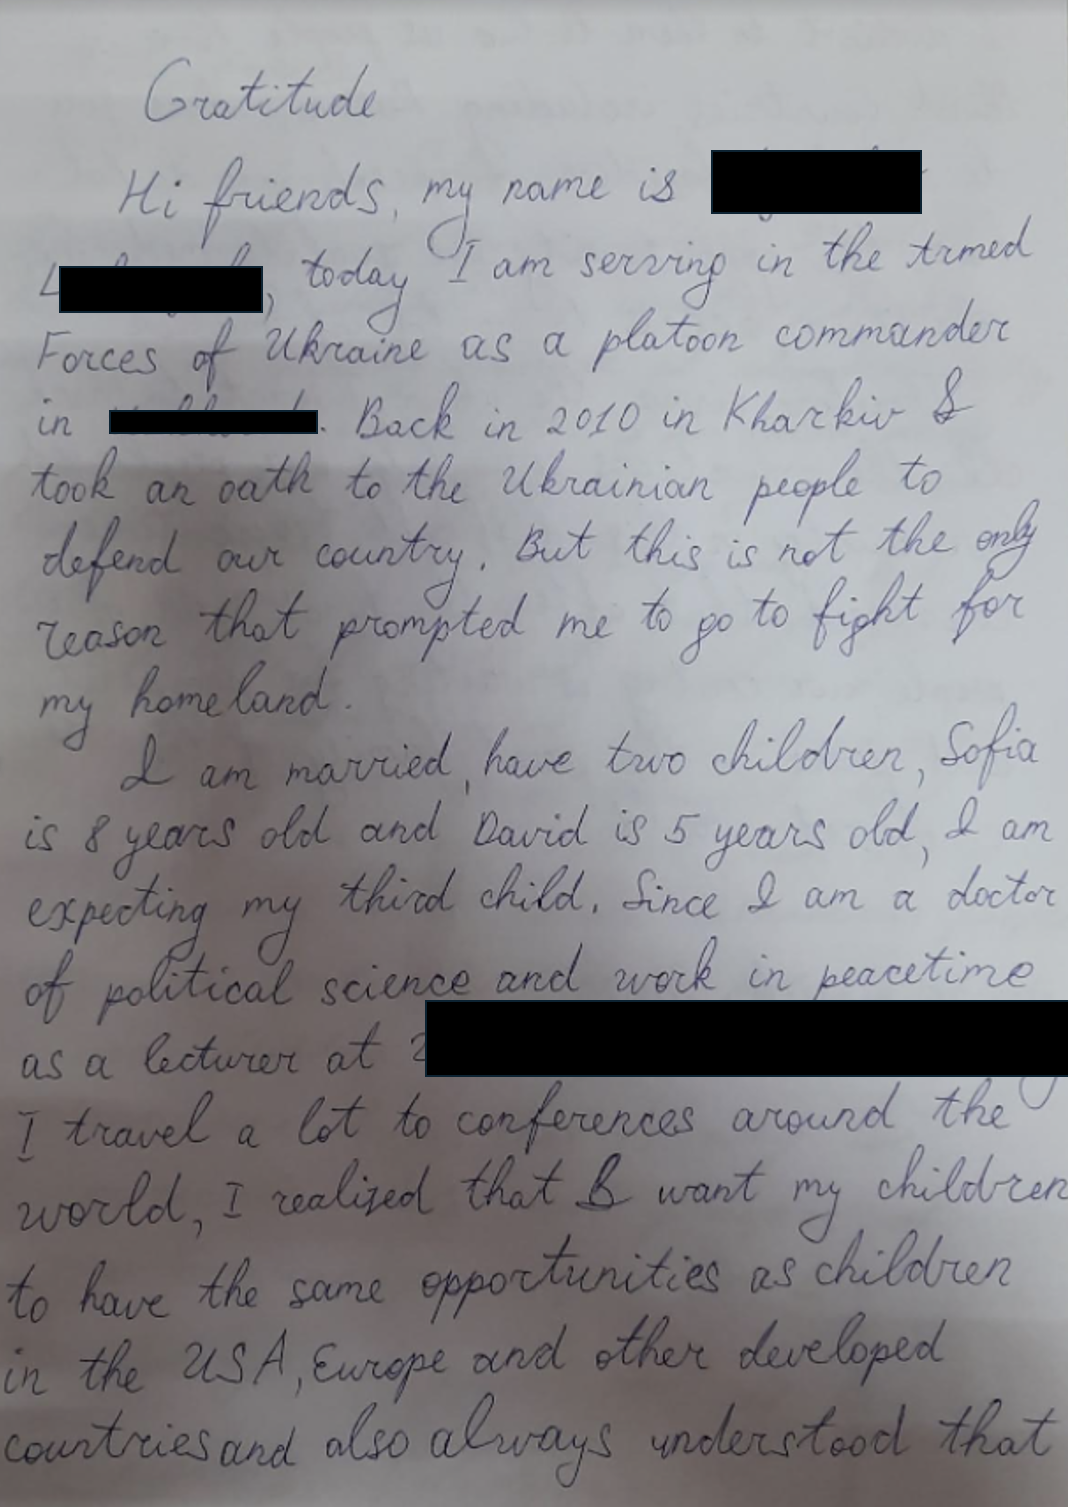 Gratitude
Hi friends, my name is
L , today I am serving in the Armed
Forces of Ukraine as a platoon commander
in . Back in 2010 in Kharkiv I
took an oath to the Ukrainian people to
defend our country. But this is not the only
reason that prompted me to go to fight for
my homeland.
I am married, have two children, Sofia
is 8 years old and David is 5 years old, I am
expecting my third child. Since I am a doctor
of political science and work in peacetime
as a lecturer at
I travel a lot to conferences around the
world, I realized that I want my children
to have the same opportunities as children
in the USA, Europe and other developed
countries and also always understood that